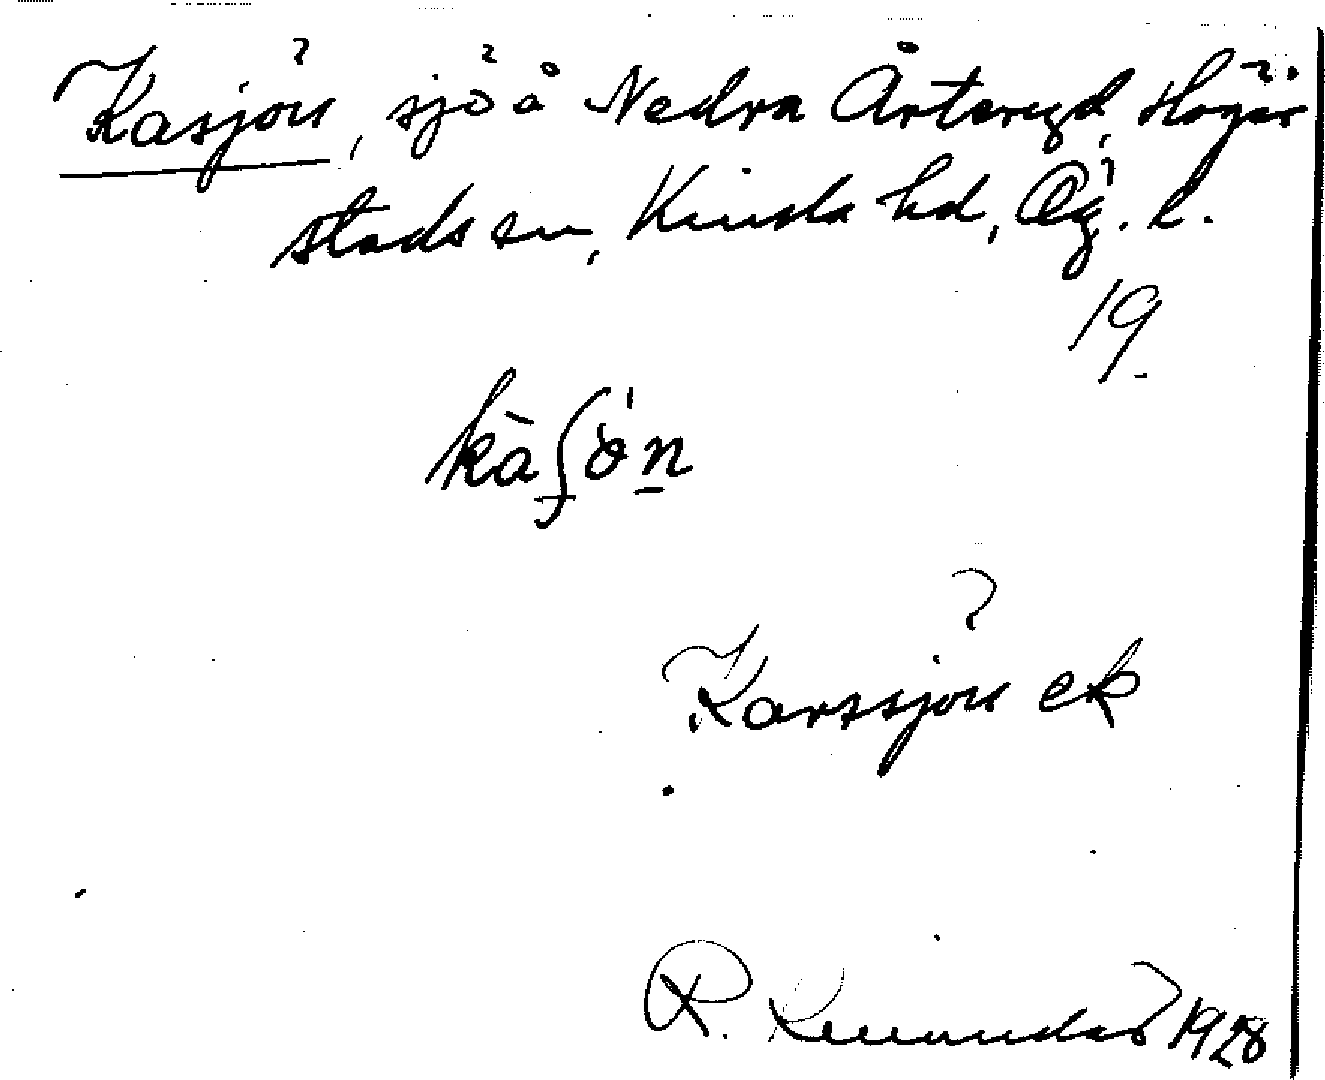 Kasjön, sjö å Nedra Årteryd, Högar
stads sn, Kinda hd, Ög. l.
19
kàʃö́n
Karssjön ek
R. 1928